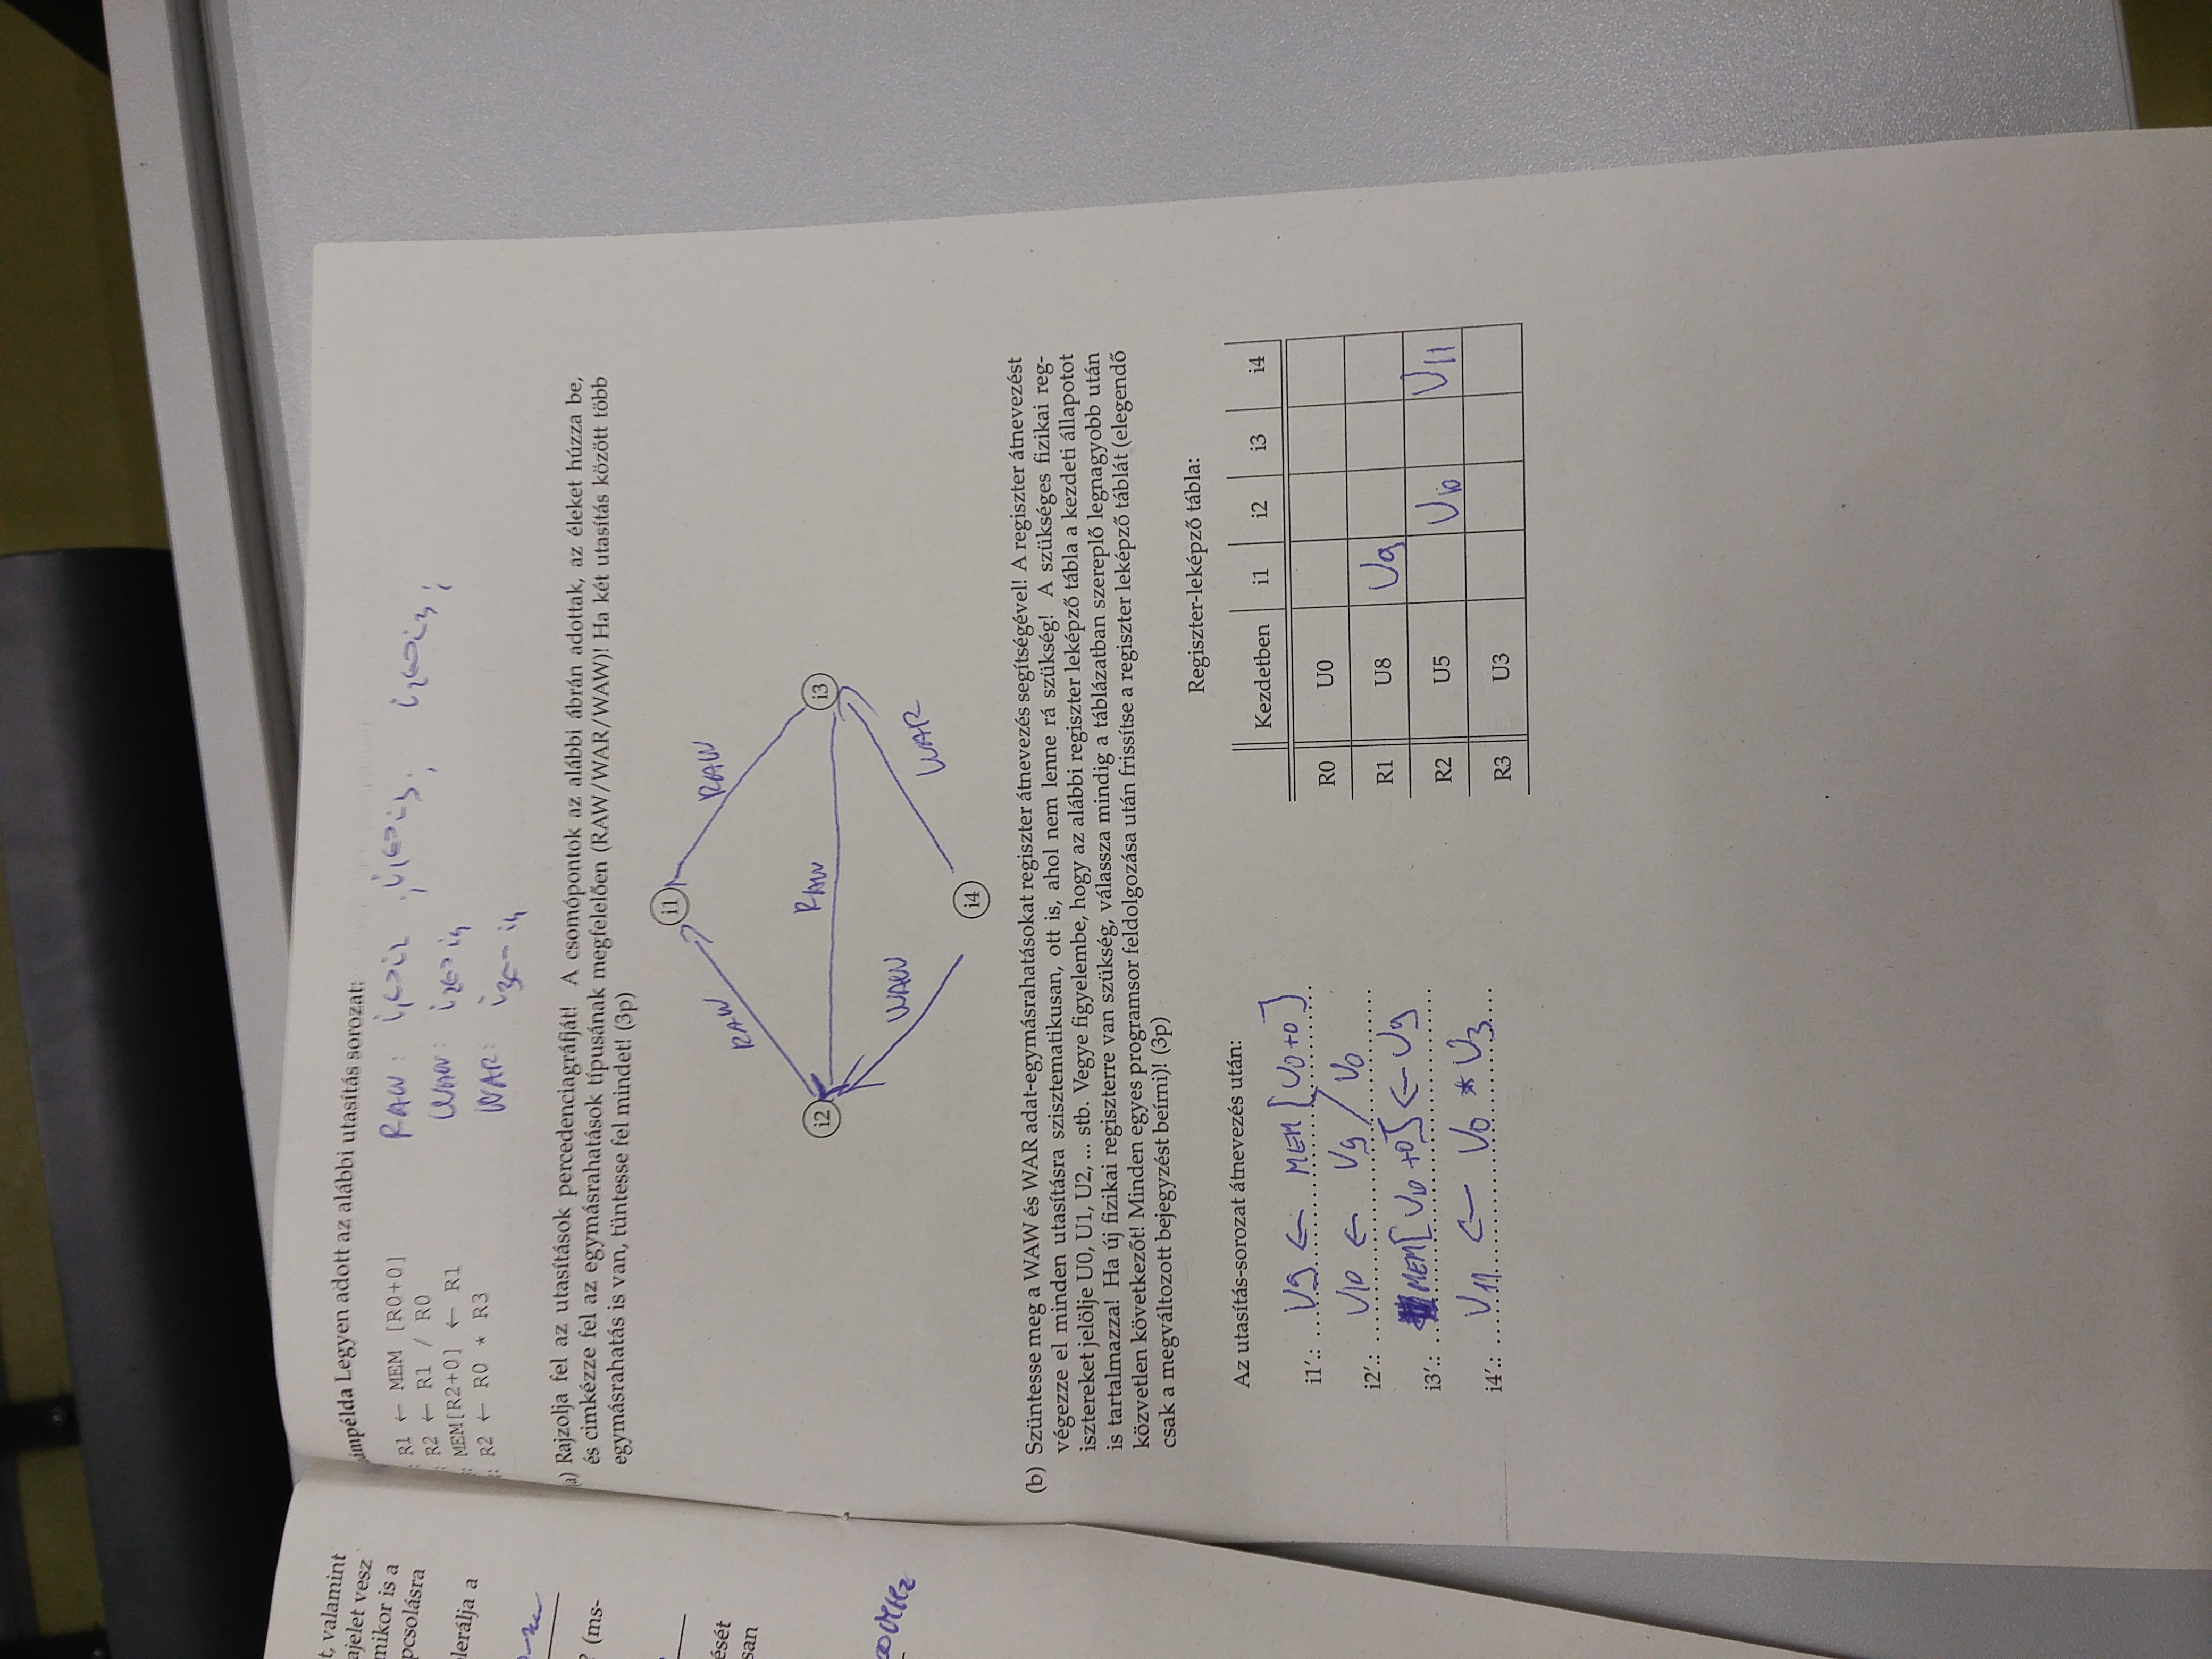 t, valamint
ajelet vesz
mikor is a
pcsolásra
lerálja a
? (ms-
ését
san
ámpélda Legyen adott az alábbi utasítás sorozat:
: R1 ← MEM [R0+0]
: R2 ← R1 / R0
: MEM[R2+0] ← R1
: R2 ← R0 * R3
RAW: i1<->i2 ; i1<->i3; i2<->i3;
WAW: i2<->i4
WAR: i3<-- i4
a) Rajzolja fel az utasítások percedenciagráfját! A csomópontok az alábbi ábrán adottak, az éleket húzza be,
és cimkézze fel az egymásrahatások típusának megfelelően (RAW/WAR/WAW)! Ha két utasítás között több
egymásrahatás is van, tüntesse fel mindet! (3p)
i1
RAW
RAW
i2
RAW
i3
WAW
WAR
i4
(b) Szüntesse meg a WAW és WAR adat-egymásrahatásokat regiszter átnevezés segítségével! A regiszter átnevezést
végezze el minden utasításra szisztematikusan, ott is, ahol nem lenne rá szükség! A szükséges fizikai reg-
isztereket jelölje U0, U1, U2, ... stb. Vegye figyelembe, hogy az alábbi regiszter leképző tábla a kezdeti állapotot
is tartalmazza! Ha új fizikai regiszterre van szükség, válassza mindig a táblázatban szereplő legnagyobb után
közvetlen következőt! Minden egyes programsor feldolgozása után frissítse a regiszter leképző táblát (elegendő
csak a megváltozott bejegyzést beírni)! (3p)
Az utasítás-sorozat átnevezés után:
i1'.: U9 ← MEM [U0+0]
i2'.: U10 ← U9 / U0
i3'.: MEM[U10+0] ← U9
i4'.: U11 ← U0 * U3
Regiszter-leképző tábla:
Kezdetben i1 i2 i3 i4
R0 U0
R1 U8 U9
R2 U5 U10 U11
R3 U3